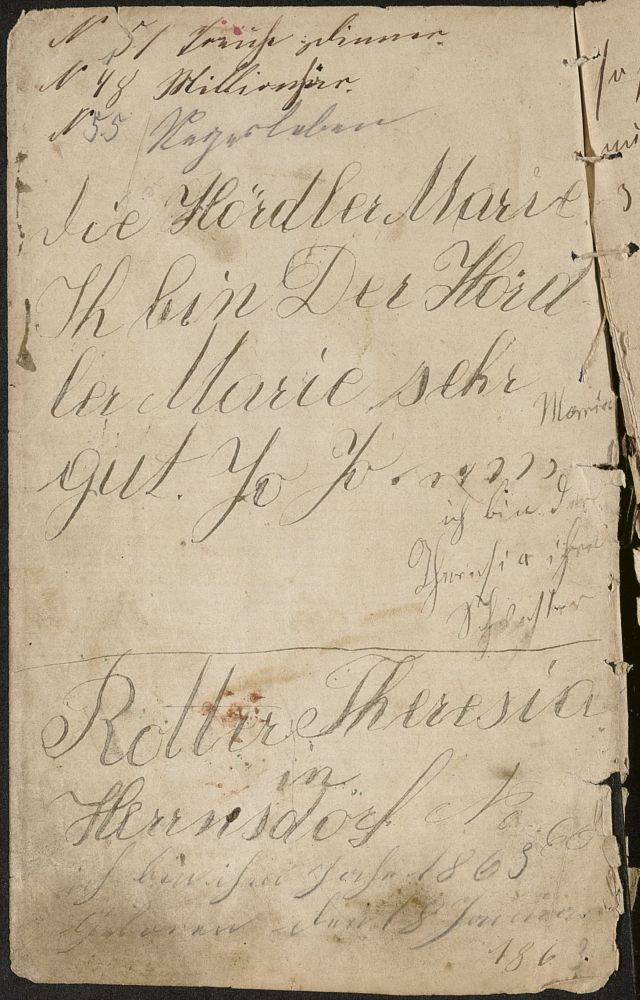 N 51
N 48 Millionär.
N 55
die Hördler Marie
Ih bin Der Hörd
ler Marie sehr
gut. Jo Jo.
ich bin der
Theresia ihre
Schwester
Rotter Theresia
in
Herrnsdorf No
ich bin im Jahr 1863
Geboren den 18 Januar
1863.